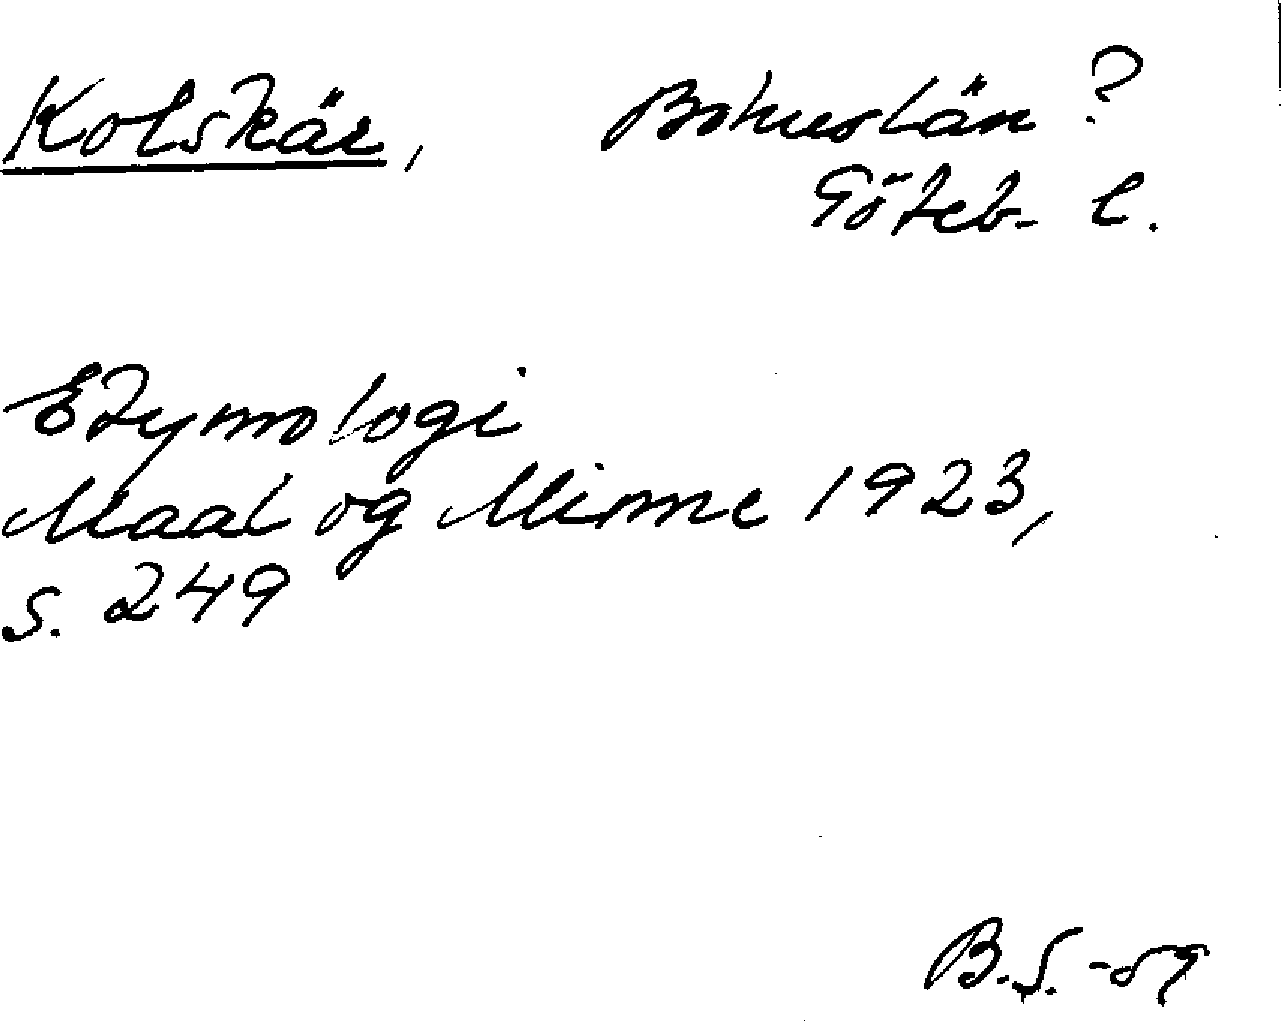 Kolskär, Bohuslän?
Göteb. l.
Etymologi
Maal og Minne 1923,
s. 249
B.S. -59